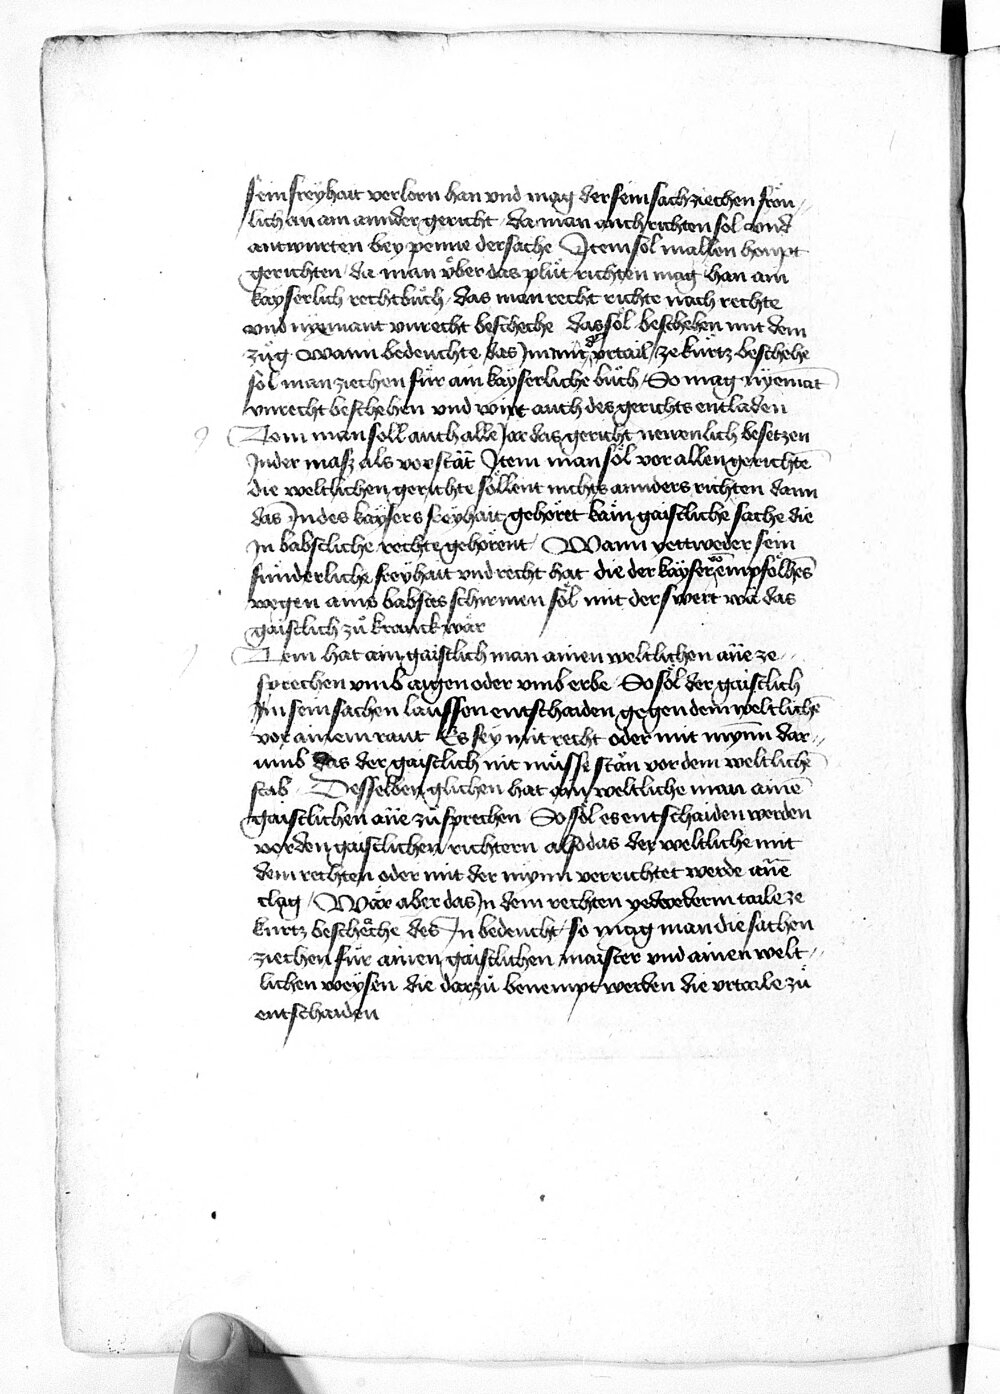 sein freÿhait verlorn han vnd mag der sein sach ziechen frön„
lich an ain annder gericht / da man auch richten sol vnd
antwurten beÿ penne der sache Item sol in allen hempt
gerichten / da man v̈ber das plůt richten mag han ain
kaÿserlich rechtbůch / das man recht richte nach rechte
vnd nÿemant vnrecht bescheche das sol beschehen mit dem
zůg Wann bedeuchte das Im mit d vrtail / ze kürtz beschehe
sol man ziechen für ain kaÿserliche bůch / So mag nÿemāt
vnrecht beschehen vnd wirt auch des gerichts entladen
Item man soll auch alle Jar das gericht newenlich besetzen
In der masz als vorstät Item man sol vor allen gerichtē
die weltlichen gerichte söllent nichts annders richten dann
das In des kaÿsers freÿhait gehöret kain gaistliche sache die
In babstliche rechte gehörent / Wann yettweder sein
sünderliche freÿhait vnd recht hat die der kaÿser empfolhēs
wegen ains babstes schirmen sol mit der swert wa das
gaistlich zů kranck wär
Item hat ain gaistlich man ainen weltlichen aüe ze„
sprechen vmb aigen oder vmb erbe So sol der gaistlich
Im sein sachen laussen entschaiden gegen dem weltlichē
vor ainem raut Es seÿ mit recht oder mit mÿnn dar„
umb das der gaistlich nit müsse stän vor dem weltlichē
stab Desselben glichen hat ain weltliche man ainē
gaistlichen aüe zů sprechen So sol es entschaiden werden
vor den gaistlichen richtern also das der weltliche mit
dem rechten oder mit der mÿnn verrichtet werde aüe
clag / Wär aber das In dem rechten yedwederm taile ze
kurtz beschäche des In bedeucht / so mag man die sachen
ziechen für ainen gaistlichen maister vnd ainen welt„
lichen weÿsen die darzů benempt werden die vrtaile zů
entschaiden